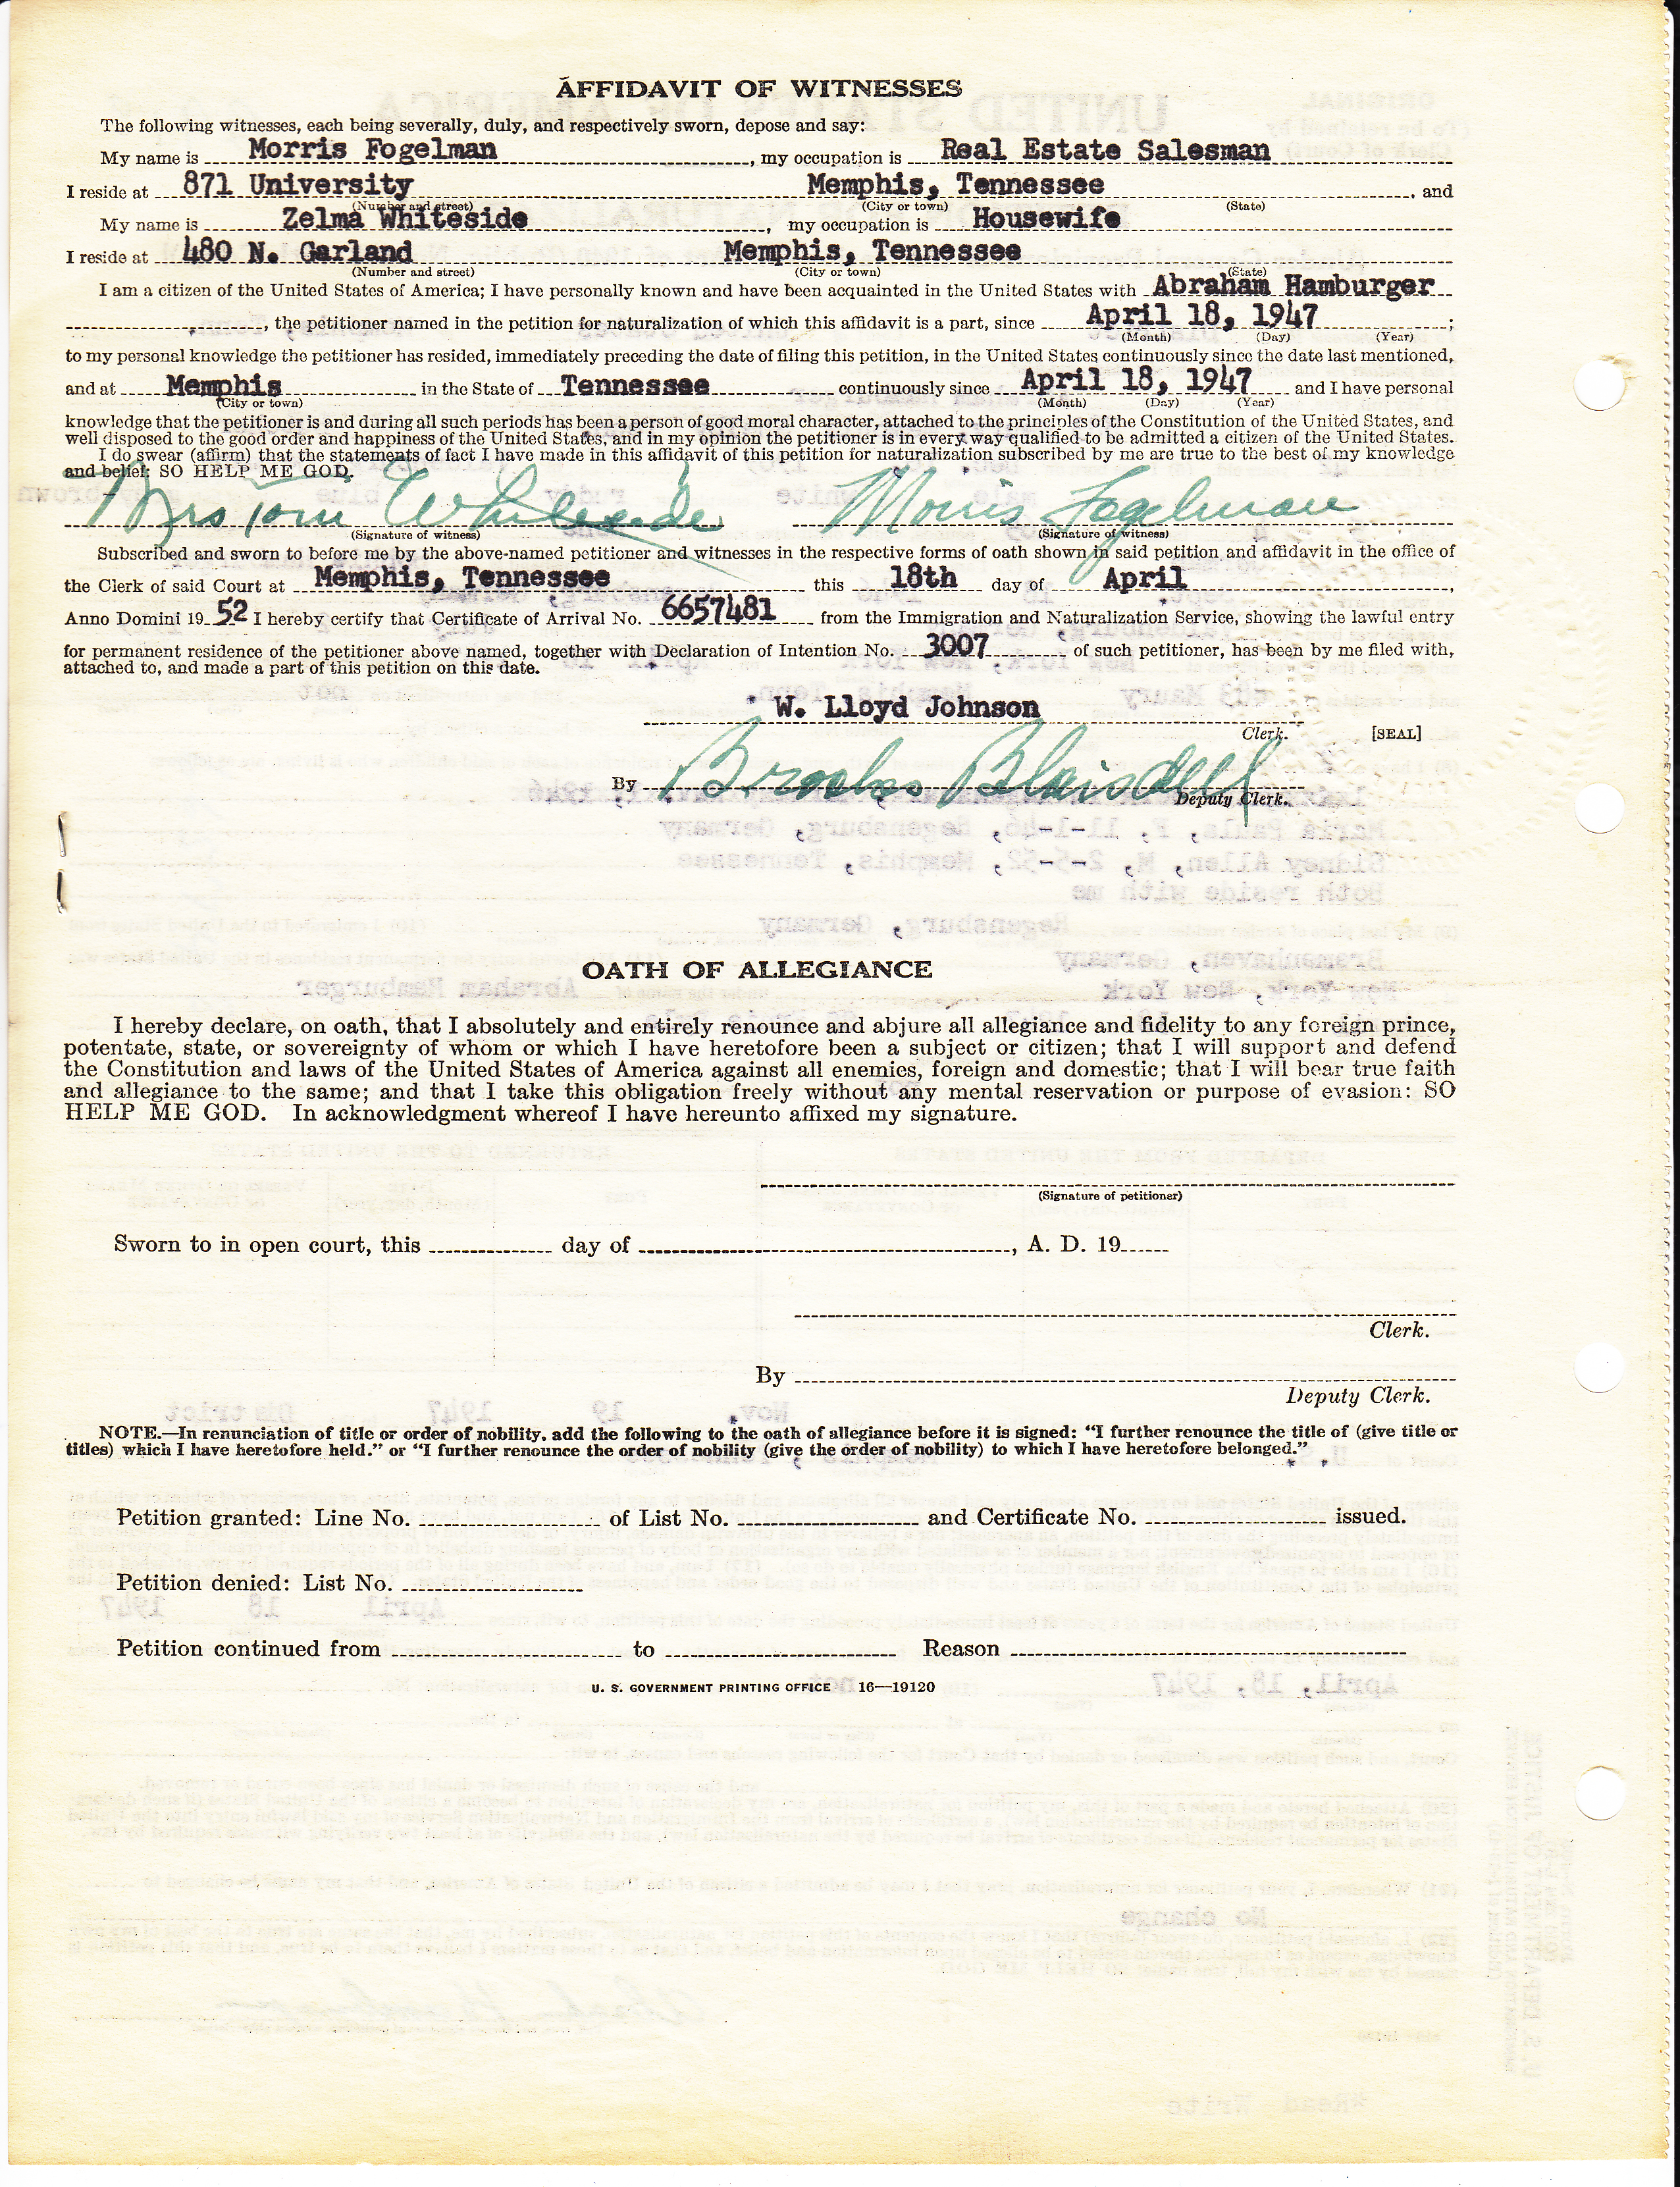 AFFIDAVIT OF WITNESSES
The following witnesses, each being severally, duly, and respectively sworn, depose and say:
My name is Morris Fogelman, my occupation is Real Estate Salesman
I reside at 871 University Memphis, Tennessee, and
(Number and street) (City or town) (State)
My name is Zelma Whiteside, my occupation is Housewife
I reside at 480 N. Garland Memphis, Tennessee
(Number and street) (City or town) (State)
I am a citizen of the United States of America; I have personally known and have been acquainted in the United States with Abraham Hamburger
, the petitioner named in the petition for naturalization of which this affidavit is a part, since April 18, 1947;
(Month) (Day) (Year)
to my personal knowledge the petitioner has resided, immediately preceding the date of filing this petition, in the United States continuously since the date last mentioned,
and at Memphis in the State of Tennessee continuously since April 18, 1947 and I have personal
(City or town) (Month) (Day) (Year)
knowledge that the petitioner is and during all such periods has been a person of good moral character, attached to the principles of the Constitution of the United States, and
well disposed to the good order and happiness of the United States, and in my opinion the petitioner is in every way qualified to be admitted a citizen of the United States.
I do swear (affirm) that the statements of fact I have made in this affidavit of this petition for naturalization subscribed by me are true to the best of my knowledge
and belief: SO HELP ME GOD.
Mrs Tom Whiteside Morris Fogelman
(Signature of witness) (Signature of witness)
Subscribed and sworn to before me by the above-named petitioner and witnesses in the respective forms of oath shown in said petition and affidavit in the office of
the Clerk of said Court at Memphis, Tennessee this 18th day of April,
Anno Domini 19 52 I hereby certify that Certificate of Arrival No. 6657481 from the Immigration and Naturalization Service, showing the lawful entry
for permanent residence of the petitioner above named, together with Declaration of Intention No. 3007 of such petitioner, has been by me filed with,
attached to, and made a part of this petition on this date.
W. Lloyd Johnson
Clerk. [SEAL]
By Brooks Blaisdell
Deputy Clerk.
OATH OF ALLEGIANCE
I hereby declare, on oath, that I absolutely and entirely renounce and abjure all allegiance and fidelity to any foreign prince,
potentate, state, or sovereignty of whom or which I have heretofore been a subject or citizen; that I will support and defend
the Constitution and laws of the United States of America against all enemies, foreign and domestic; that I will bear true faith
and allegiance to the same; and that I take this obligation freely without any mental reservation or purpose of evasion: SO
HELP ME GOD. In acknowledgment whereof I have hereunto affixed my signature.
(Signature of petitioner)
Sworn to in open court, this day of , A. D. 19
Clerk.
By
Deputy Clerk.
NOTE.—In renunciation of title or order of nobility, add the following to the oath of allegiance before it is signed: “I further renounce the title of (give title or
titles) which I have heretofore held.” or “I further renounce the order of nobility (give the order of nobility) to which I have heretofore belonged.”
Petition granted: Line No. of List No. and Certificate No. issued.
Petition denied: List No.
Petition continued from to Reason
U. S. GOVERNMENT PRINTING OFFICE 16—19120